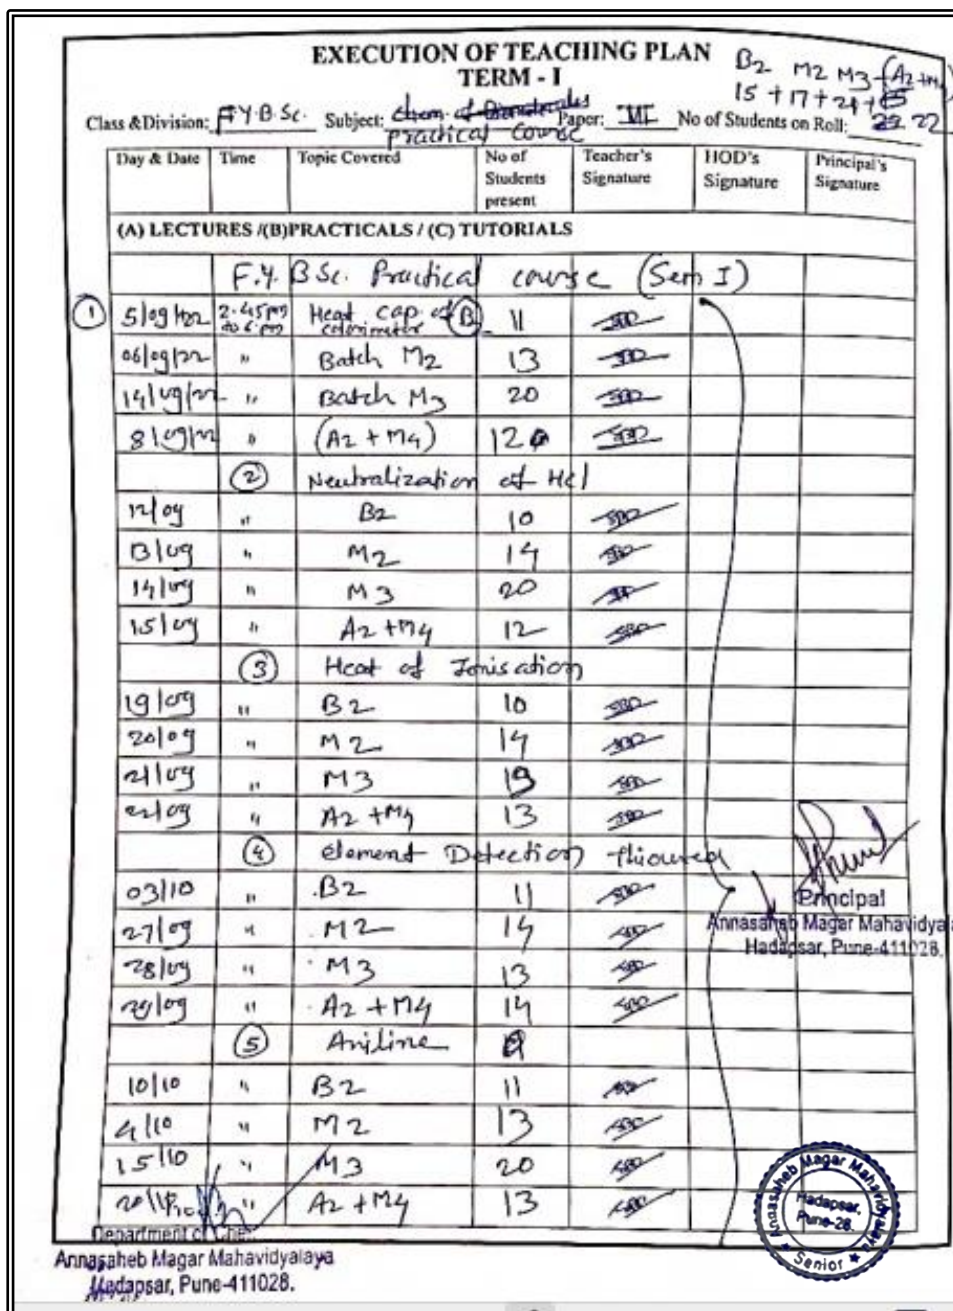 EXECUTION OF TEACHING PLAN
TERM - I
B2 M2 M3 (A2+M4)
15 + 17 + 21 +
Class & Division: F.Y.B.Sc. Subject: Chem. of Paper: III No of Students on Roll: 22
Practical Course
Day & Date Time Topic Covered No of Students present Teacher's Signature HOD's Signature Principal's Signature
(A) LECTURES /(B)PRACTICALS / (C) TUTORIALS
F.Y. B Sc. Practical course (Sem I)
① 5/09/22 2.45pm to 6.pm Heat cap of calorimeter B 11
06/09/22 " Batch M2 13
14/09/22 " Batch M3 20
8/09/22 " (A2 + M4) 12
② Neutralization of HCl
12/09 " B2 10
13/09 " M2 14
14/09 " M3 20
15/09 " A2 + M4 12
③ Heat of Ionisation
19/09 " B2 10
20/09 " M2 14
21/09 " M3 19
22/09 " A2 + M4 13
④ Element Detection Thiourea
03/10 " B2 11
27/09 " M2 14
28/09 " M3 13
29/09 " A2 + M4 14
Principal
Annasaheb Magar Mahavidya
Hadapsar, Pune-411028.
⑤ Aniline
10/10 " B2 11
4/10 " M2 13
15/10 " M3 20
20/10 " A2 + M4 13
Department of Che
Annasaheb Magar Mahavidyalaya
Hadapsar, Pune-411028.
Annasaheb Magar Mahavidyalaya
Hadapsar,
Pune-28.
Senior